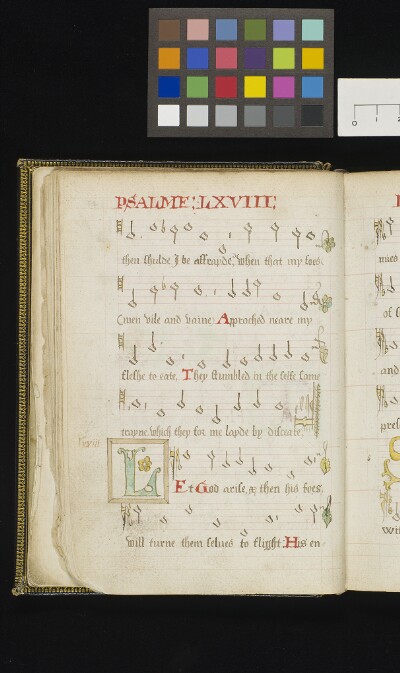 PSALME: LXVIII:
then shulde I be affrayde, when that my foes:
Cruell vile and vaine: Approched neare my
fleshe to eate. They stumbled in the selfe same
trayne, which they for me layde by disceate.
LEt God arise, & then his foes,
will turne them selues to flight: His en-